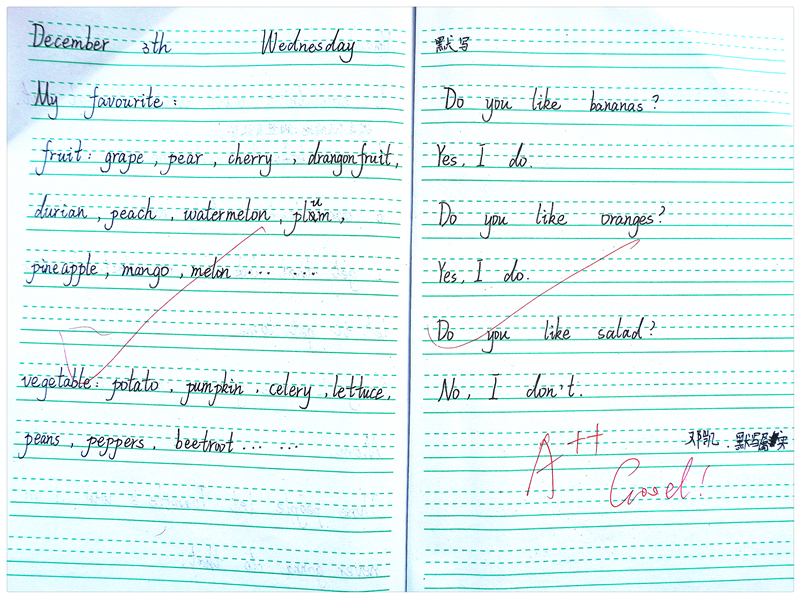 December 3th Wednesday
My favourite:
fruit: grape, pear, cherry, drangonfruit,
durian, peach, watermelon, plum,
pineapple, mango, melon ... ...
vegetable: potato, pumpkin, celery, lettuce,
peans, peppers, beetroot ... ...
默写
Do you like bananas?
Yes, I do.
Do you like oranges?
Yes, I do.
Do you like salad?
No, I don't.
A++
邓凯.默写
Good!